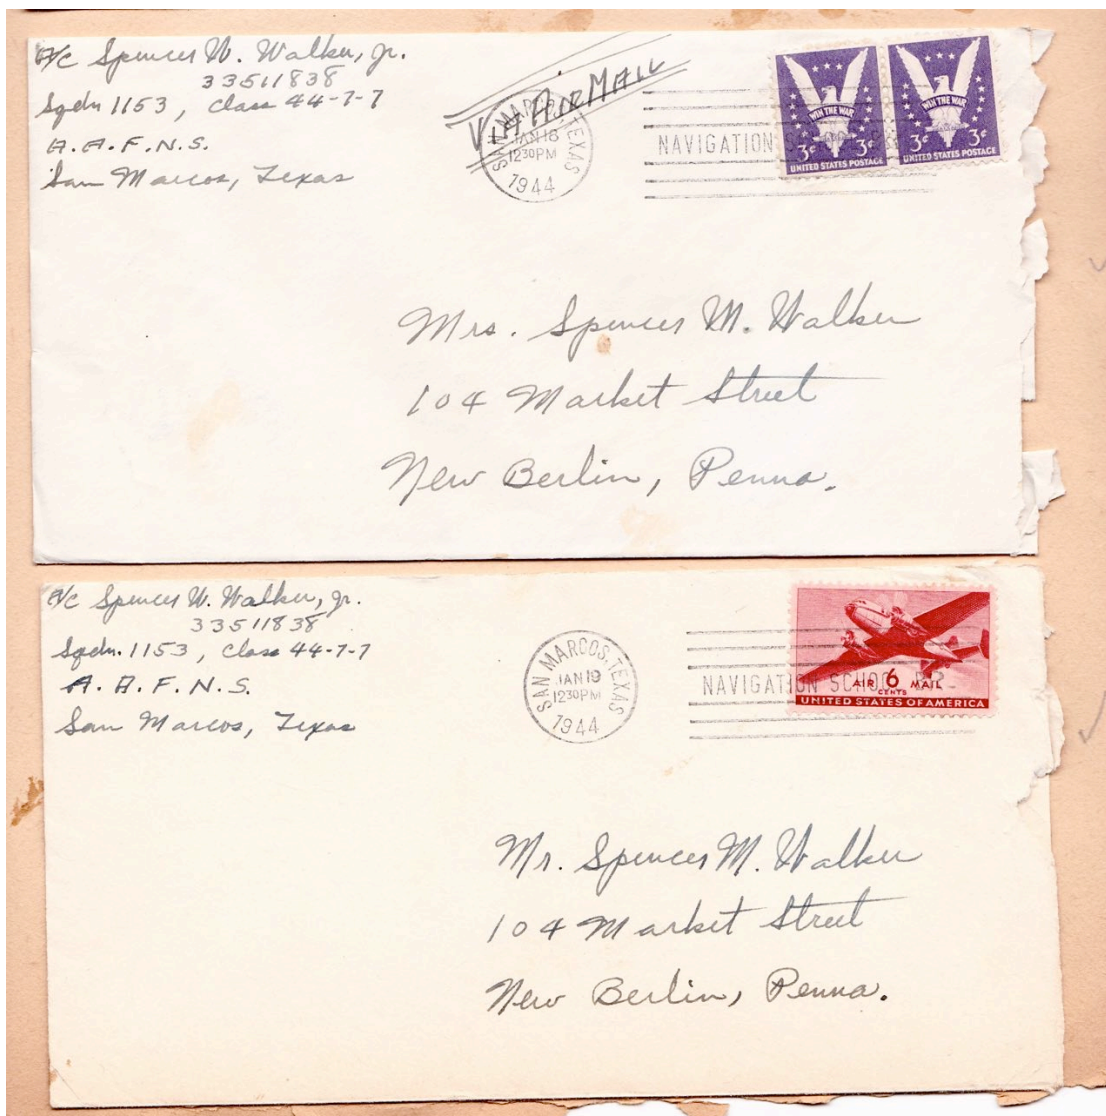 A/C Spencer W. Walker, Jr.
33511838
Sqdn 1153, Class 44-7-7
A.A.F.N.S.
San Marcos, Texas
VIA AIR MAIL
SAN MARCOS, TEXAS
JAN 18
1230 PM
1944
NAVIGATION
WIN THE WAR
3¢ 3¢
UNITED STATES POSTAGE
WIN THE WAR
3¢ 3¢
UNITED STATES POSTAGE
Mrs. Spencer M. Walker
104 Market Street
New Berlin, Penna.
A/C Spencer W. Walker, Jr.
33511838
Sqdn. 1153, Class 44-7-7
A.A.F.N.S.
San Marcos, Texas
SAN MARCOS, TEXAS
JAN 19
1230 PM
1944
NAVIGATION SCHOO
AIR 6 MAIL
CENTS
UNITED STATES OF AMERICA
Mr. Spencer M. Walker
104 Market Street
New Berlin, Penna.